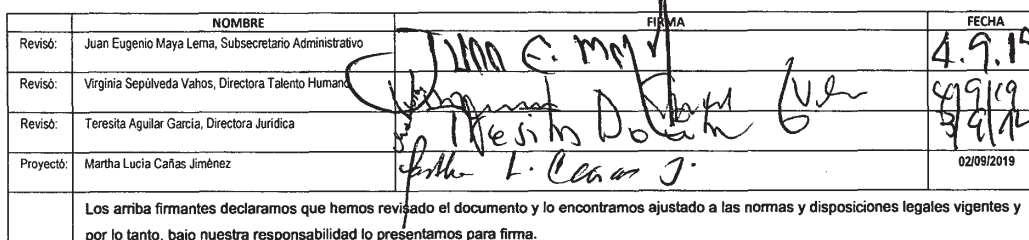 NOMBRE FIRMA FECHA
Revisó: Juan Eugenio Maya Lema, Subsecretario Administrativo Juan E. May 4.9.19
Revisó: Virginia Sepúlveda Vahos, Directora Talento Humano 4/9/19
Revisó: Teresita Aguilar Garcia, Directora Jurídica Teresita
Proyectó: Martha Lucía Cañas Jiménez Martha L. Cañas J. 02/09/2019
Los arriba firmantes declaramos que hemos revisado el documento y lo encontramos ajustado a las normas y disposiciones legales vigentes y
por lo tanto, bajo nuestra responsabilidad lo presentamos para firma.